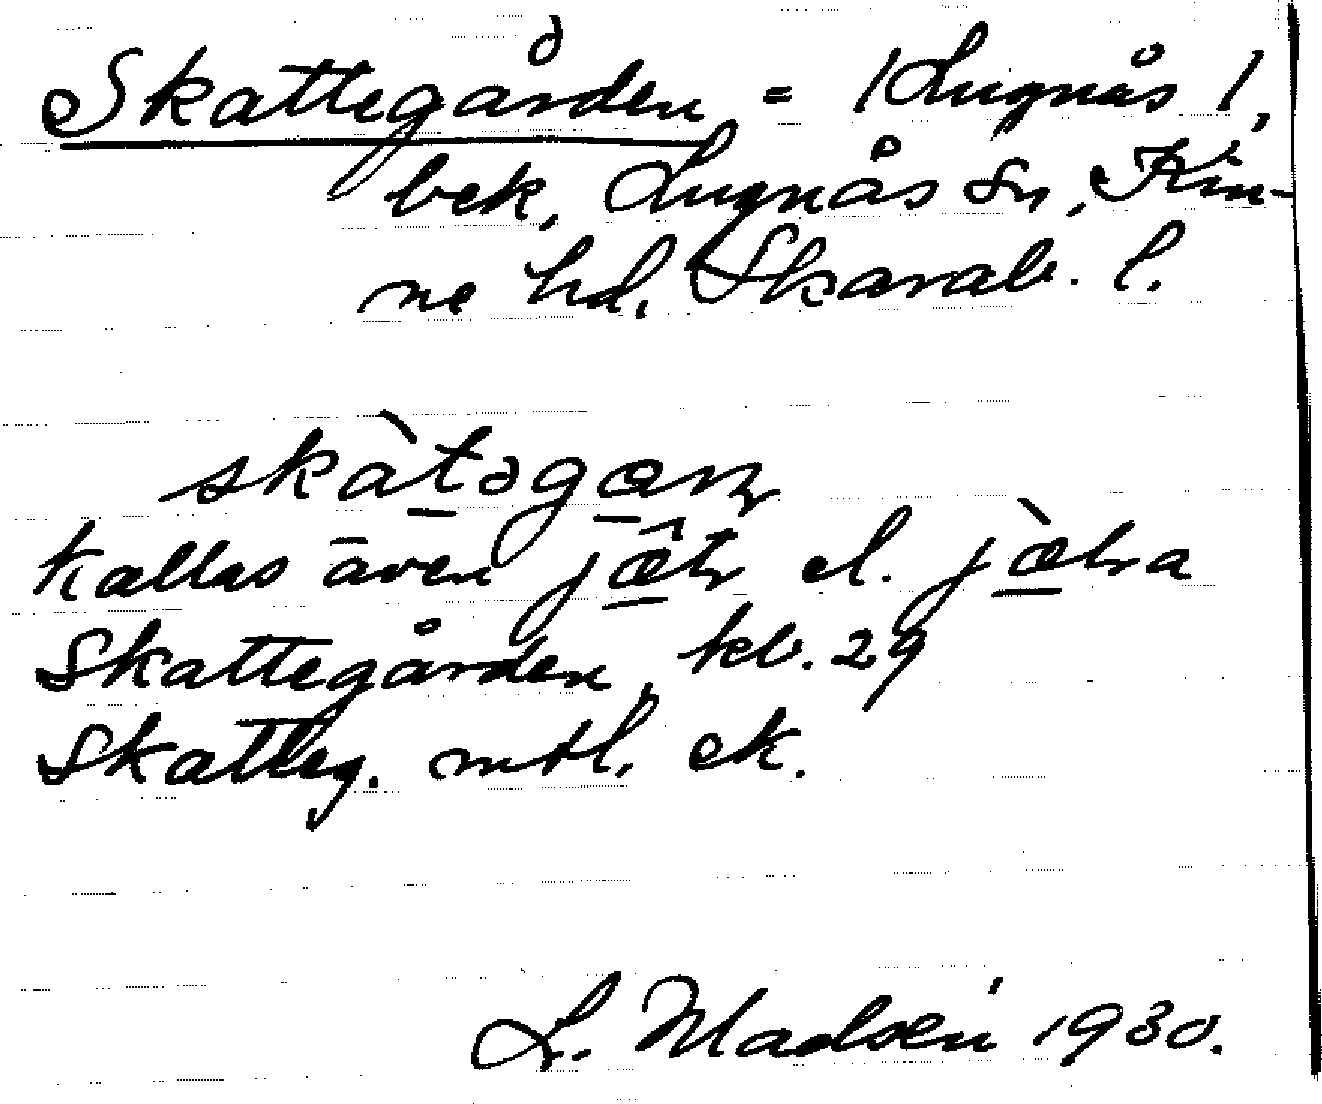 Skattegården = /Lugnås/,
bek, Lugnås sn, Kin-
ne hd, Skarab. l.
skàtəgæn
kallas även jætn el. jætna
Skattegården, kb. 29
Skatteg. mtl. ek.
L. Madsén 1930.